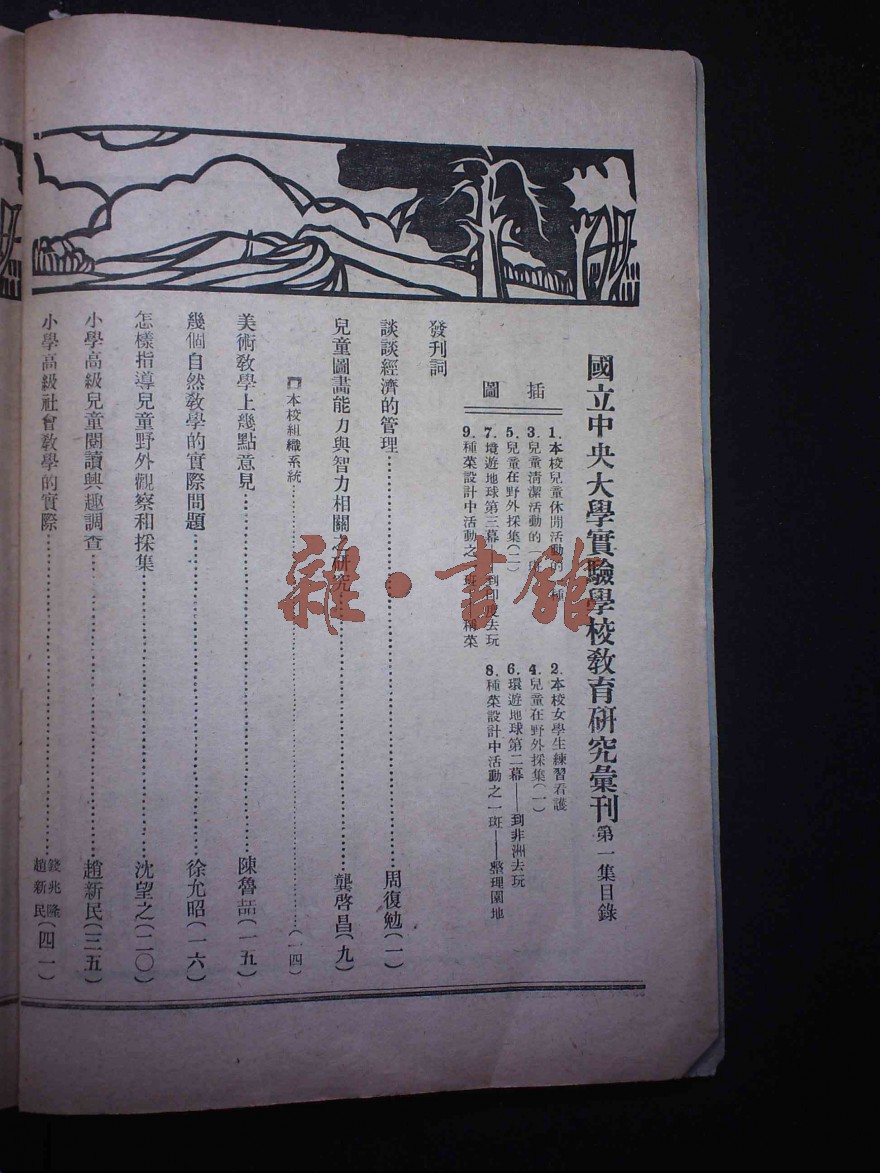 國立中央大學實驗學校教育研究彙刊 第一集目錄
插圖
1. 本校兒童休閒活動的一種
2. 本校女學生練習看護
3. 兒童清潔活動的一班
4. 兒童在野外採集(一)
5. 兒童在野外採集(二)
6. 環遊地球第二幕——到非洲去玩
7. 環遊地球第三幕——到印度去玩
8. 種菜設計中活動之一斑——整理園地
9. 種菜設計中活動之一斑——稱菜
發刊詞
談談經濟的管理……周復勉(一)
兒童圖畫能力與智力相關之研究……龔啓昌(九)
本校組織系統……(一四)
美術教學上幾點意見……陳魯喆(一五)
幾個自然教學的實際問題……徐允昭(一六)
怎樣指導兒童野外觀察和採集……沈望之(二〇)
小學高級兒童閱讀興趣調查……趙新民(三五)
小學高級社會教學的實際……錢兆隆 趙新民(四一)
雜·書館